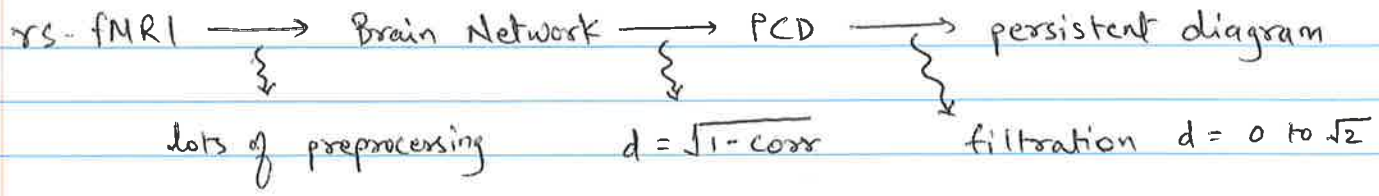 rs-fMRI → Brain Network → PCD → persistent diagram
lots of preprocessing d = √1-corr filtration d = 0 to √2